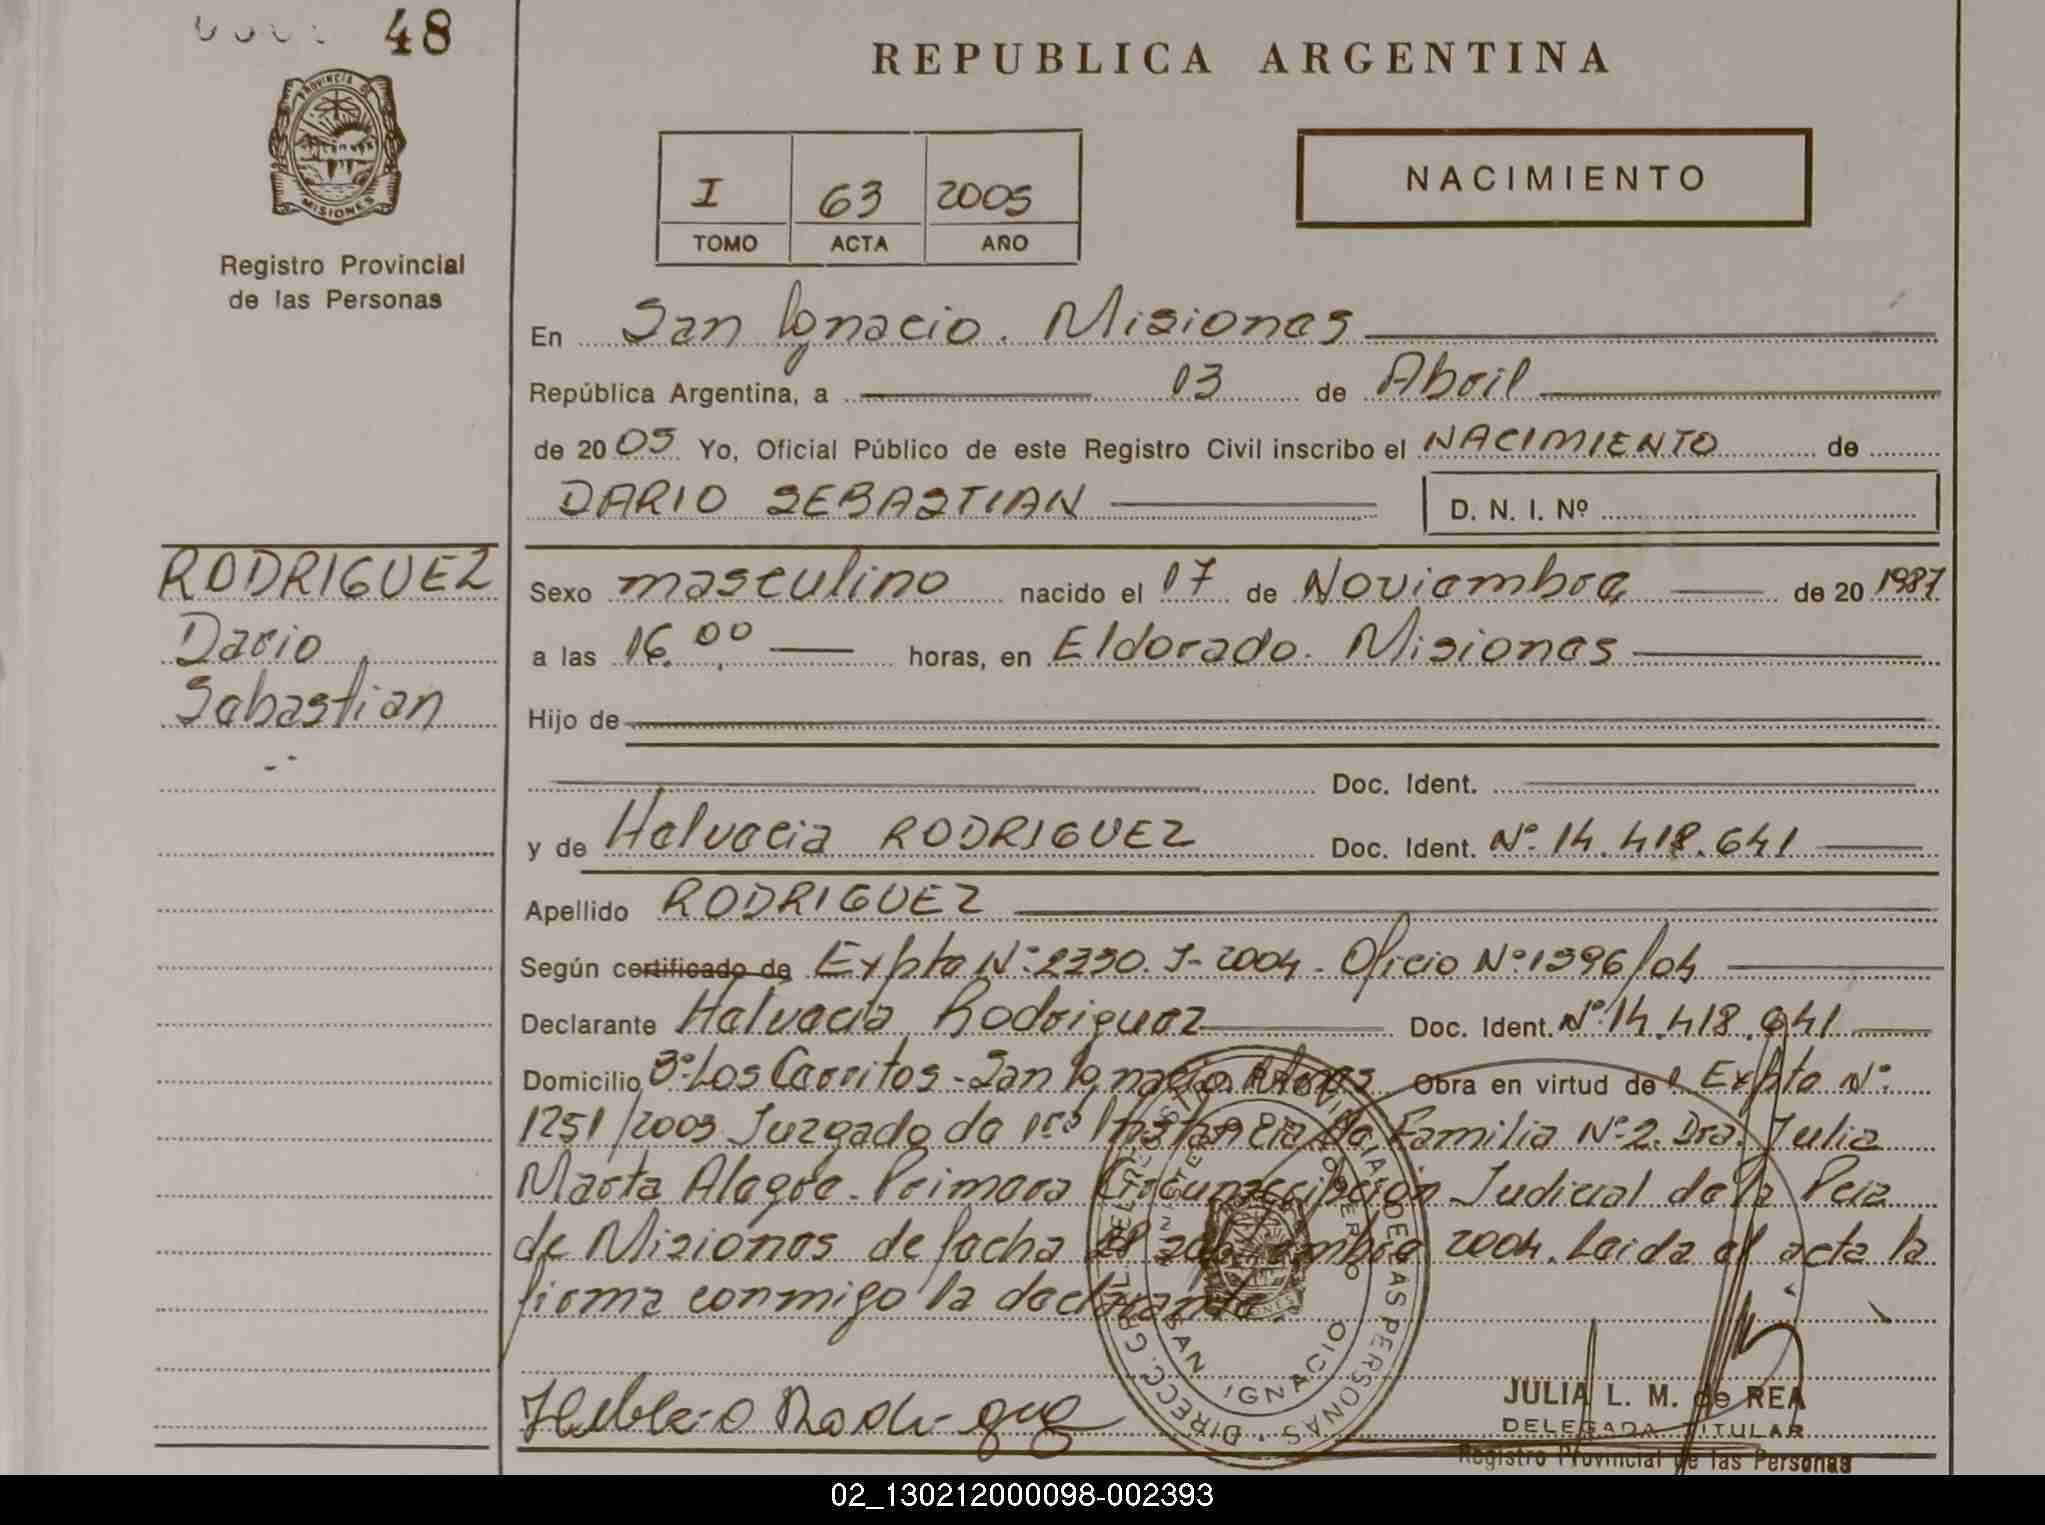 48
REPUBLICA ARGENTINA
PROVINCIA DE
MISIONES
Registro Provincial
de las Personas
I 63 2005
TOMO ACTA AÑO
NACIMIENTO
En San Ignacio. Misiones
República Argentina, a 03 de Abril
de 20 05 Yo, Oficial Público de este Registro Civil inscribo el NACIMIENTO de
DARIO SEBASTIAN D. N. I. Nº
RODRIGUEZ
Dario
Sebastian
Sexo masculino nacido el 17 de Noviembre de 20 1987
a las 16.00 horas, en Eldorado. Misiones
Hijo de
Doc. Ident.
y de Helvecia RODRIGUEZ Doc. Ident. Nº 14.418.641
Apellido RODRIGUEZ
Según certificado de Expte Nº 2330. J-2004. Oficio Nº 1396/04
Declarante Helvecia Rodriguez Doc. Ident. Nº 14.418.641
Domicilio Bº Los Cerritos - San Ignacio. Mnes Obra en virtud de Expte Nº
1251/2003 Juzgado de 1ra Instancia de Familia Nº 2. Dra. Julia
Marta Alegre. Primera Circunscripción Judicial de la Pcia
de Misiones de fecha 28 septiembre 2004. Leida el acta la
firma conmigo la declarante
DIRECC. GRAL. DEL REGISTRO PROVINCIAL DE LAS PERSONAS
MINISTERIO DE GOBIERNO
MISIONES
SAN IGNACIO
JULIA L. M. de REA
DELEGADA TITULAR
Registro Provincial de las Personas
02_130212000098-002393